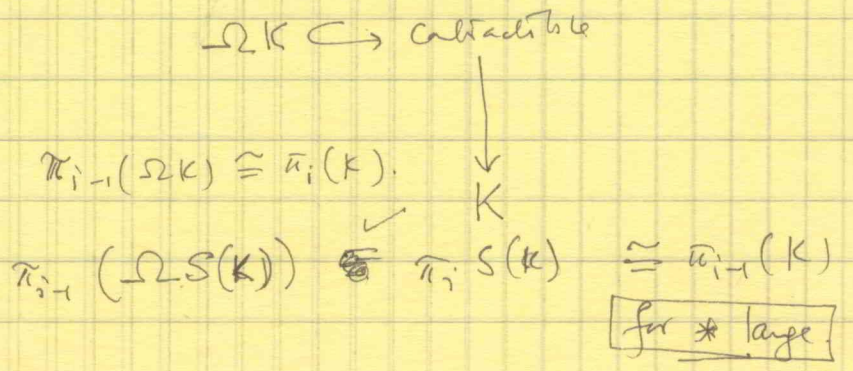 ΩK ↪ contractible
↓
π_{i-1}(ΩK) ≅ π_i(K).
K
π_{i-1}(ΩS(K)) π_i S(K) ≅ π_{i-1}(K)
for * large.